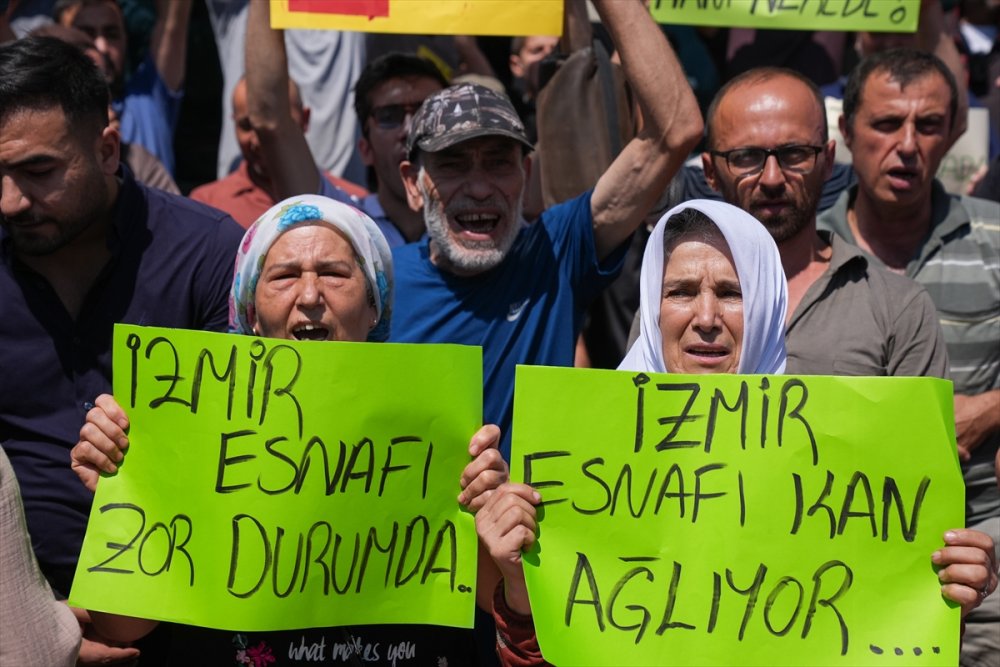 İZMİR
ESNAFI
ZOR DURUMDA..
İZMİR
ESNAFI KAN
AĞLIYOR .....
what makes you